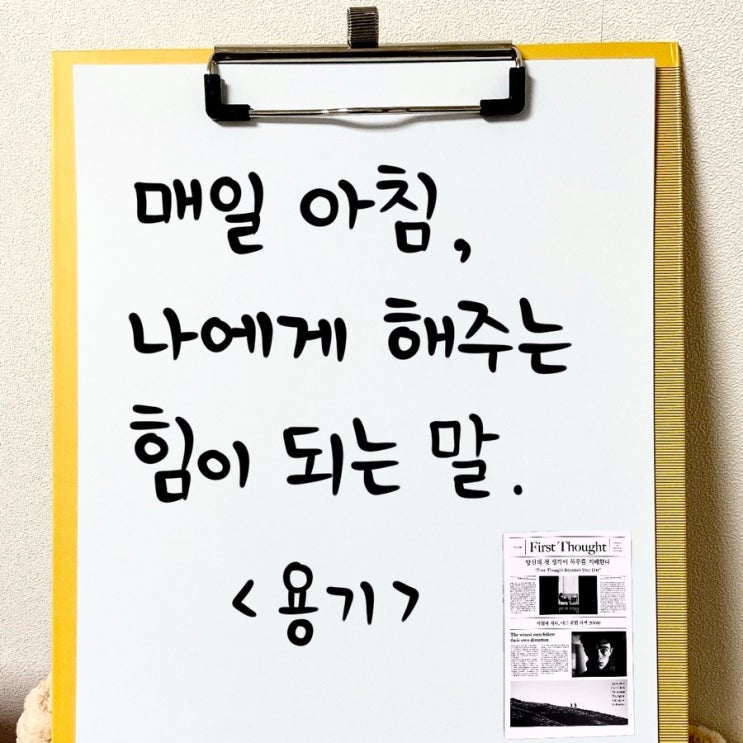 매일 아침,
나에게 해주는
힘이 되는 말.
<용기>
First Thought
당신의 첫 생각이 하루를 지배한다
"First Thought Becomes Your Day"
The wisest men follow
their own direction